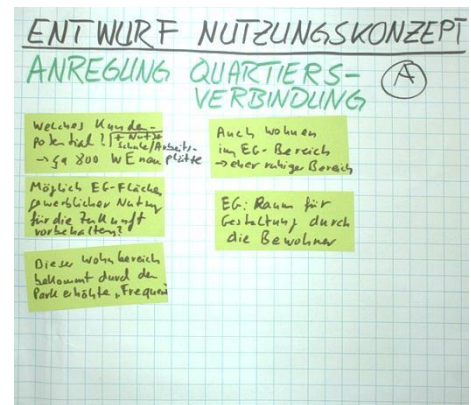 ENTWURF NUTZUNGSKONZEPT
ANREGUNG QUARTIERS-
VERBINDUNG
A
Welches Kunden-
potential? + Nutzer
Schule/Arbeits-
→ ca 800 WE neu plätze
Möglich EG-Fläche
gewerblicher Nutzung
für die Zukunft
vorbehalten?
Dieser Wohnbereich
bekommt durch den
Park erhöhte „Frequenz
Auch Wohnen
im EG-Bereich
→ eher ruhiger Bereich
EG: Raum für
Gestaltung durch
die Bewohner